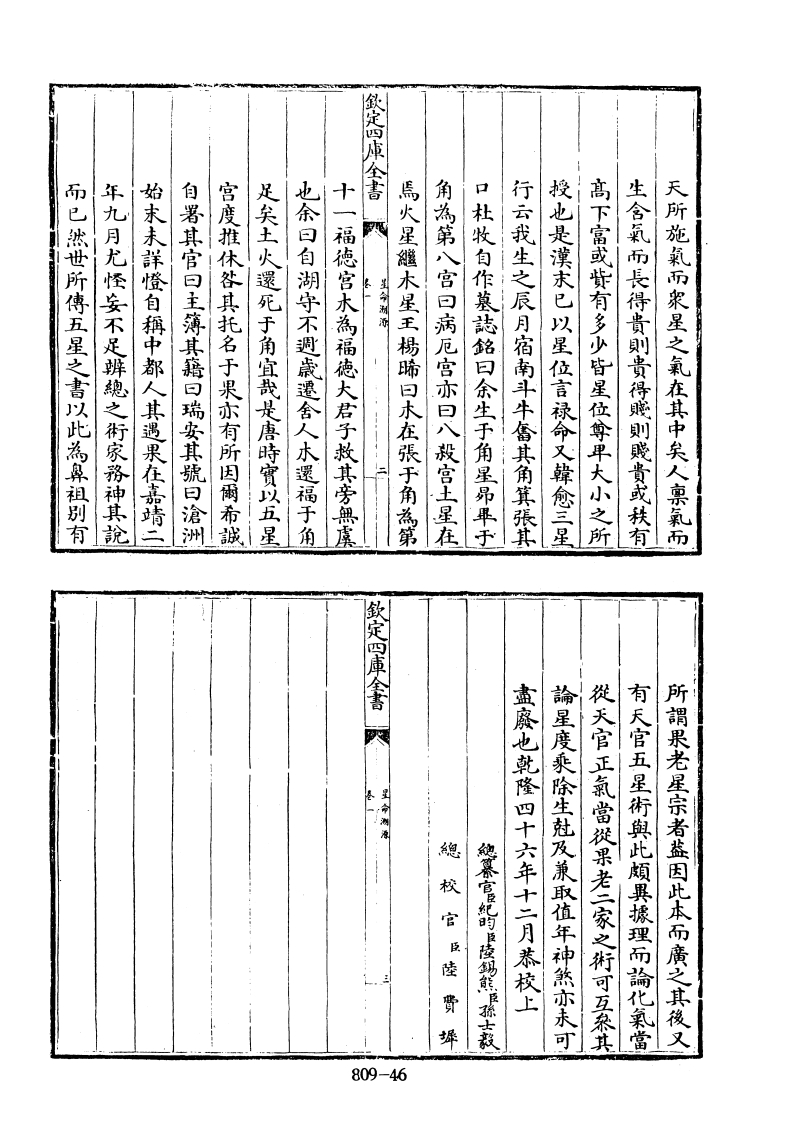 天所施氣而衆星之氣在其中矣人禀氣而
生含氣而長得貴則貴得賤則賤貴或秩有
髙下富或貲有多少皆星位尊卑大小之所
授也是漢末已以星位言祿命又韓愈三星
行云我生之辰月宿南斗牛奮其角箕張其
口杜牧自作墓誌銘曰余生于角星昴畢于
角為第八宮曰病厄宮亦曰八殺宮土星在
焉火星繼木星王楊晞曰木在張于角為第
欽定四庫全書
星命溯源
卷一
二
十一福德宮木為福德大君子救其旁無虞
也余曰自湖守不週歲遷舍人木還福于角
足矣土火還死于角宜哉是唐時實以五星
宮度推休咎其托名于果亦有所因爾希誠
自署其官曰主簿其籍曰瑞安其號曰滄洲
始末未詳憕自稱中都人其遇果在嘉靖二
年九月尤怪妄不足辨總之術家務神其說
而已然世所傳五星之書以此為鼻祖别有
所謂果老星宗者葢因此本而廣之其後又
有天官五星術與此頗異據理而論化氣當
從天官正氣當從果老二家之術可互叅其
論星度乘除生尅及兼取值年神煞亦未可
盡廢也乾隆四十六年十二月恭校上
總纂官臣紀昀臣陸錫熊臣孫士毅
總校官臣陸費墀
欽定四庫全書
星命溯源
卷一
三
809-46